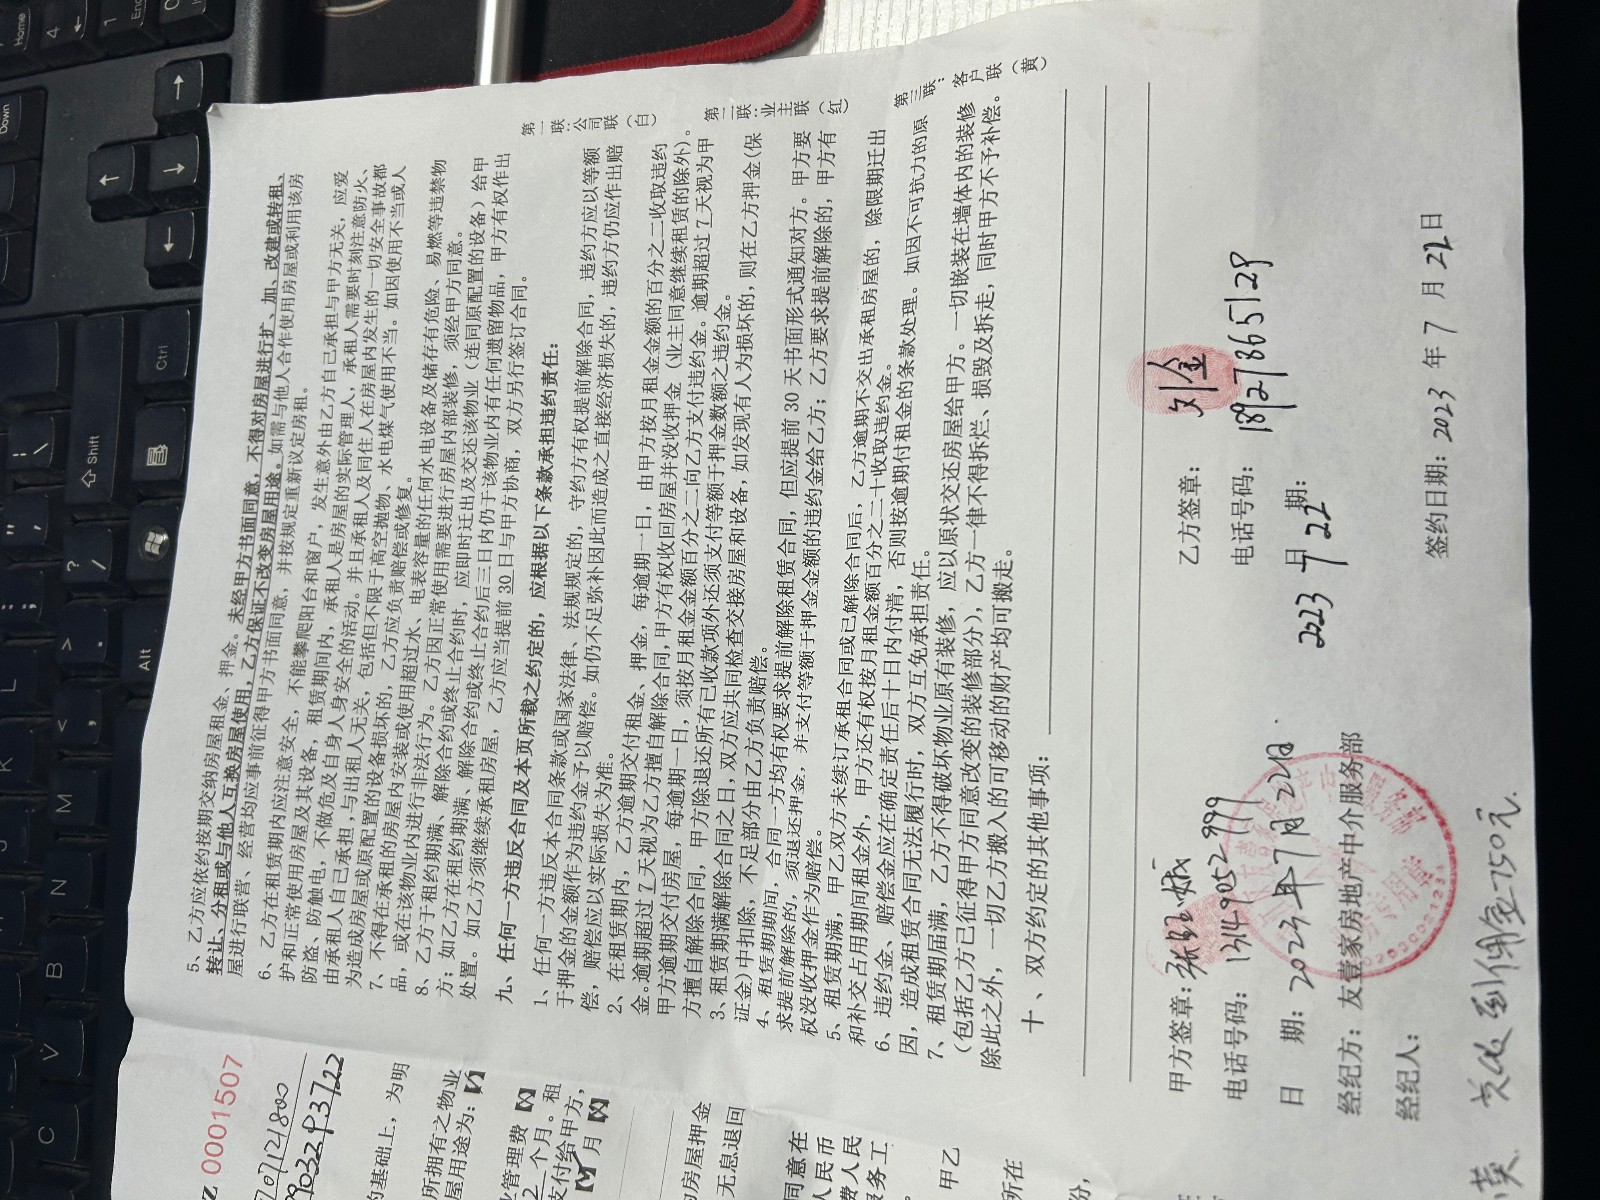 5、乙方应依约按期交纳房屋租金、押金。未经甲方书面同意，不得对房屋进行扩、加、改建或转租、
转让、分租或与他人互换房屋使用，乙方保证不改变房屋用途。如需与他人合作使用房屋或利用该房
屋进行联营、经营均应事前征得甲方书面同意，并按规定重新议定房租。
6、乙方在租赁期内应注意安全，不能攀爬阳台和窗户，发生意外由乙方自己承担与甲方无关，应爱
护和正常使用房屋及其设备，租赁期间内，承租人是房屋的实际管理人，承租人需要时刻注意防火、
防盗、防触电，不做危及自身人身安全的活动。并且承租人及同住人在房屋内发生的一切安全事故都
由承租人自己承担，与出租人无关，包括但不限于高空抛物、水电煤气使用不当。如因使用不当或人
为造成房屋或原配置的设备损坏的，乙方应负责赔偿或修复。
7、不得在承租的房屋内安装或使用超过水、电表容量的任何水电设备及储存有危险、易燃等违禁物
品，或在该物业内进行非法行为。乙方因正常使用需要进行房屋内部装修，须经甲方同意。
8、乙方于租约期满、解除合约或终止合约时，应即时迁出及交还该物业（连同原配置的设备）给甲
方；如乙方在租约期满、解除合约或终止合约后三日内仍于该物业内有任何遗留物品，甲方有权作出
处置。如乙方须继续承租房屋，乙方应当提前30日与甲方协商，双方另行签订合同。
九、任何一方违反合同及本页所载之约定的，应根据以下条款承担违约责任：
1、任何一方违反本合同条款或国家法律、法规规定的，守约方有权提前解除合同，违约方应以等额
于押金的金额作为违约金予以赔偿。如仍不足弥补因此而造成之直接经济损失的，违约方仍应作出赔
偿，赔偿应以实际损失为准。
2、在租赁期内，乙方逾期交付租金、押金，每逾期一日，由甲方按月租金金额的百分之二收取违约
金。逾期超过7天视为乙方擅自解除合同，甲方有权收回房屋并没收押金（业主同意继续租赁的除外）。
甲方逾期交付房屋，每逾期一日，须按月租金金额百分之二向乙方支付违约金。逾期超过7天视为甲
方擅自解除合同，甲方除退还所有已收款项外还须支付等额于押金数额之违约金。
3、租赁期满解除合同之日，双方应共同检查交接房屋和设备，如发现有人为损坏的，则在乙方押金(保
证金）中扣除，不足部分由乙方负责赔偿。
4、租赁期期间，合同一方均有权要求提前解除租赁合同，但应提前30天书面形式通知对方。甲方要
求提前解除的，须退还押金，并支付等额于押金金额的违约金给乙方；乙方要求提前解除的，甲方有
权没收押金作为赔偿。
5、租赁期满，甲乙双方未续订承租合同或已解除合同后，乙方逾期不交出承租房屋的，除限期迁出
和补交占用期间租金外，甲方还有权按月租金额百分之二十收取违约金。
6、违约金、赔偿金应在确定责任后十日内付清，否则按逾期付租金的条款处理。如因不可抗力的原
因，造成租赁合同无法履行时，双方互免承担责任。
7、租赁期届满，乙方不得破坏物业原有装修，应以原状交还房屋给甲方。一切嵌装在墙体内的装修
（包括乙方已征得甲方同意改变的装修部分），乙方一律不得拆烂、损毁及拆走，同时甲方不予补偿。
除此之外，一切乙方搬入的可移动的财产均可搬走。
十、双方约定的其他事项：
甲方签章：
电话号码：13149052999
日 期：2023年7月22日
经纪方：友壹家房地产中介服务部
经纪人：
乙方签章：刘金
电话号码：18927865129
日 期：
2023 7 22
签约日期：2023 年 7 月 22 日
收到佣金750元.
第一联：公司联（白）
第二联：业主联（红）
第三联：客户联（黄）
0001507
的基础上，为明
所拥有之物业
屋用途为：
业管理费
2 个月。租
支付给甲方，
月
的房屋押金
无息退回
同意在
人民币
费人民
服务工
甲乙
所在
份，
Home
End
Down
Shift
Ctrl
Alt
L
K
J
M
N
B
V
C